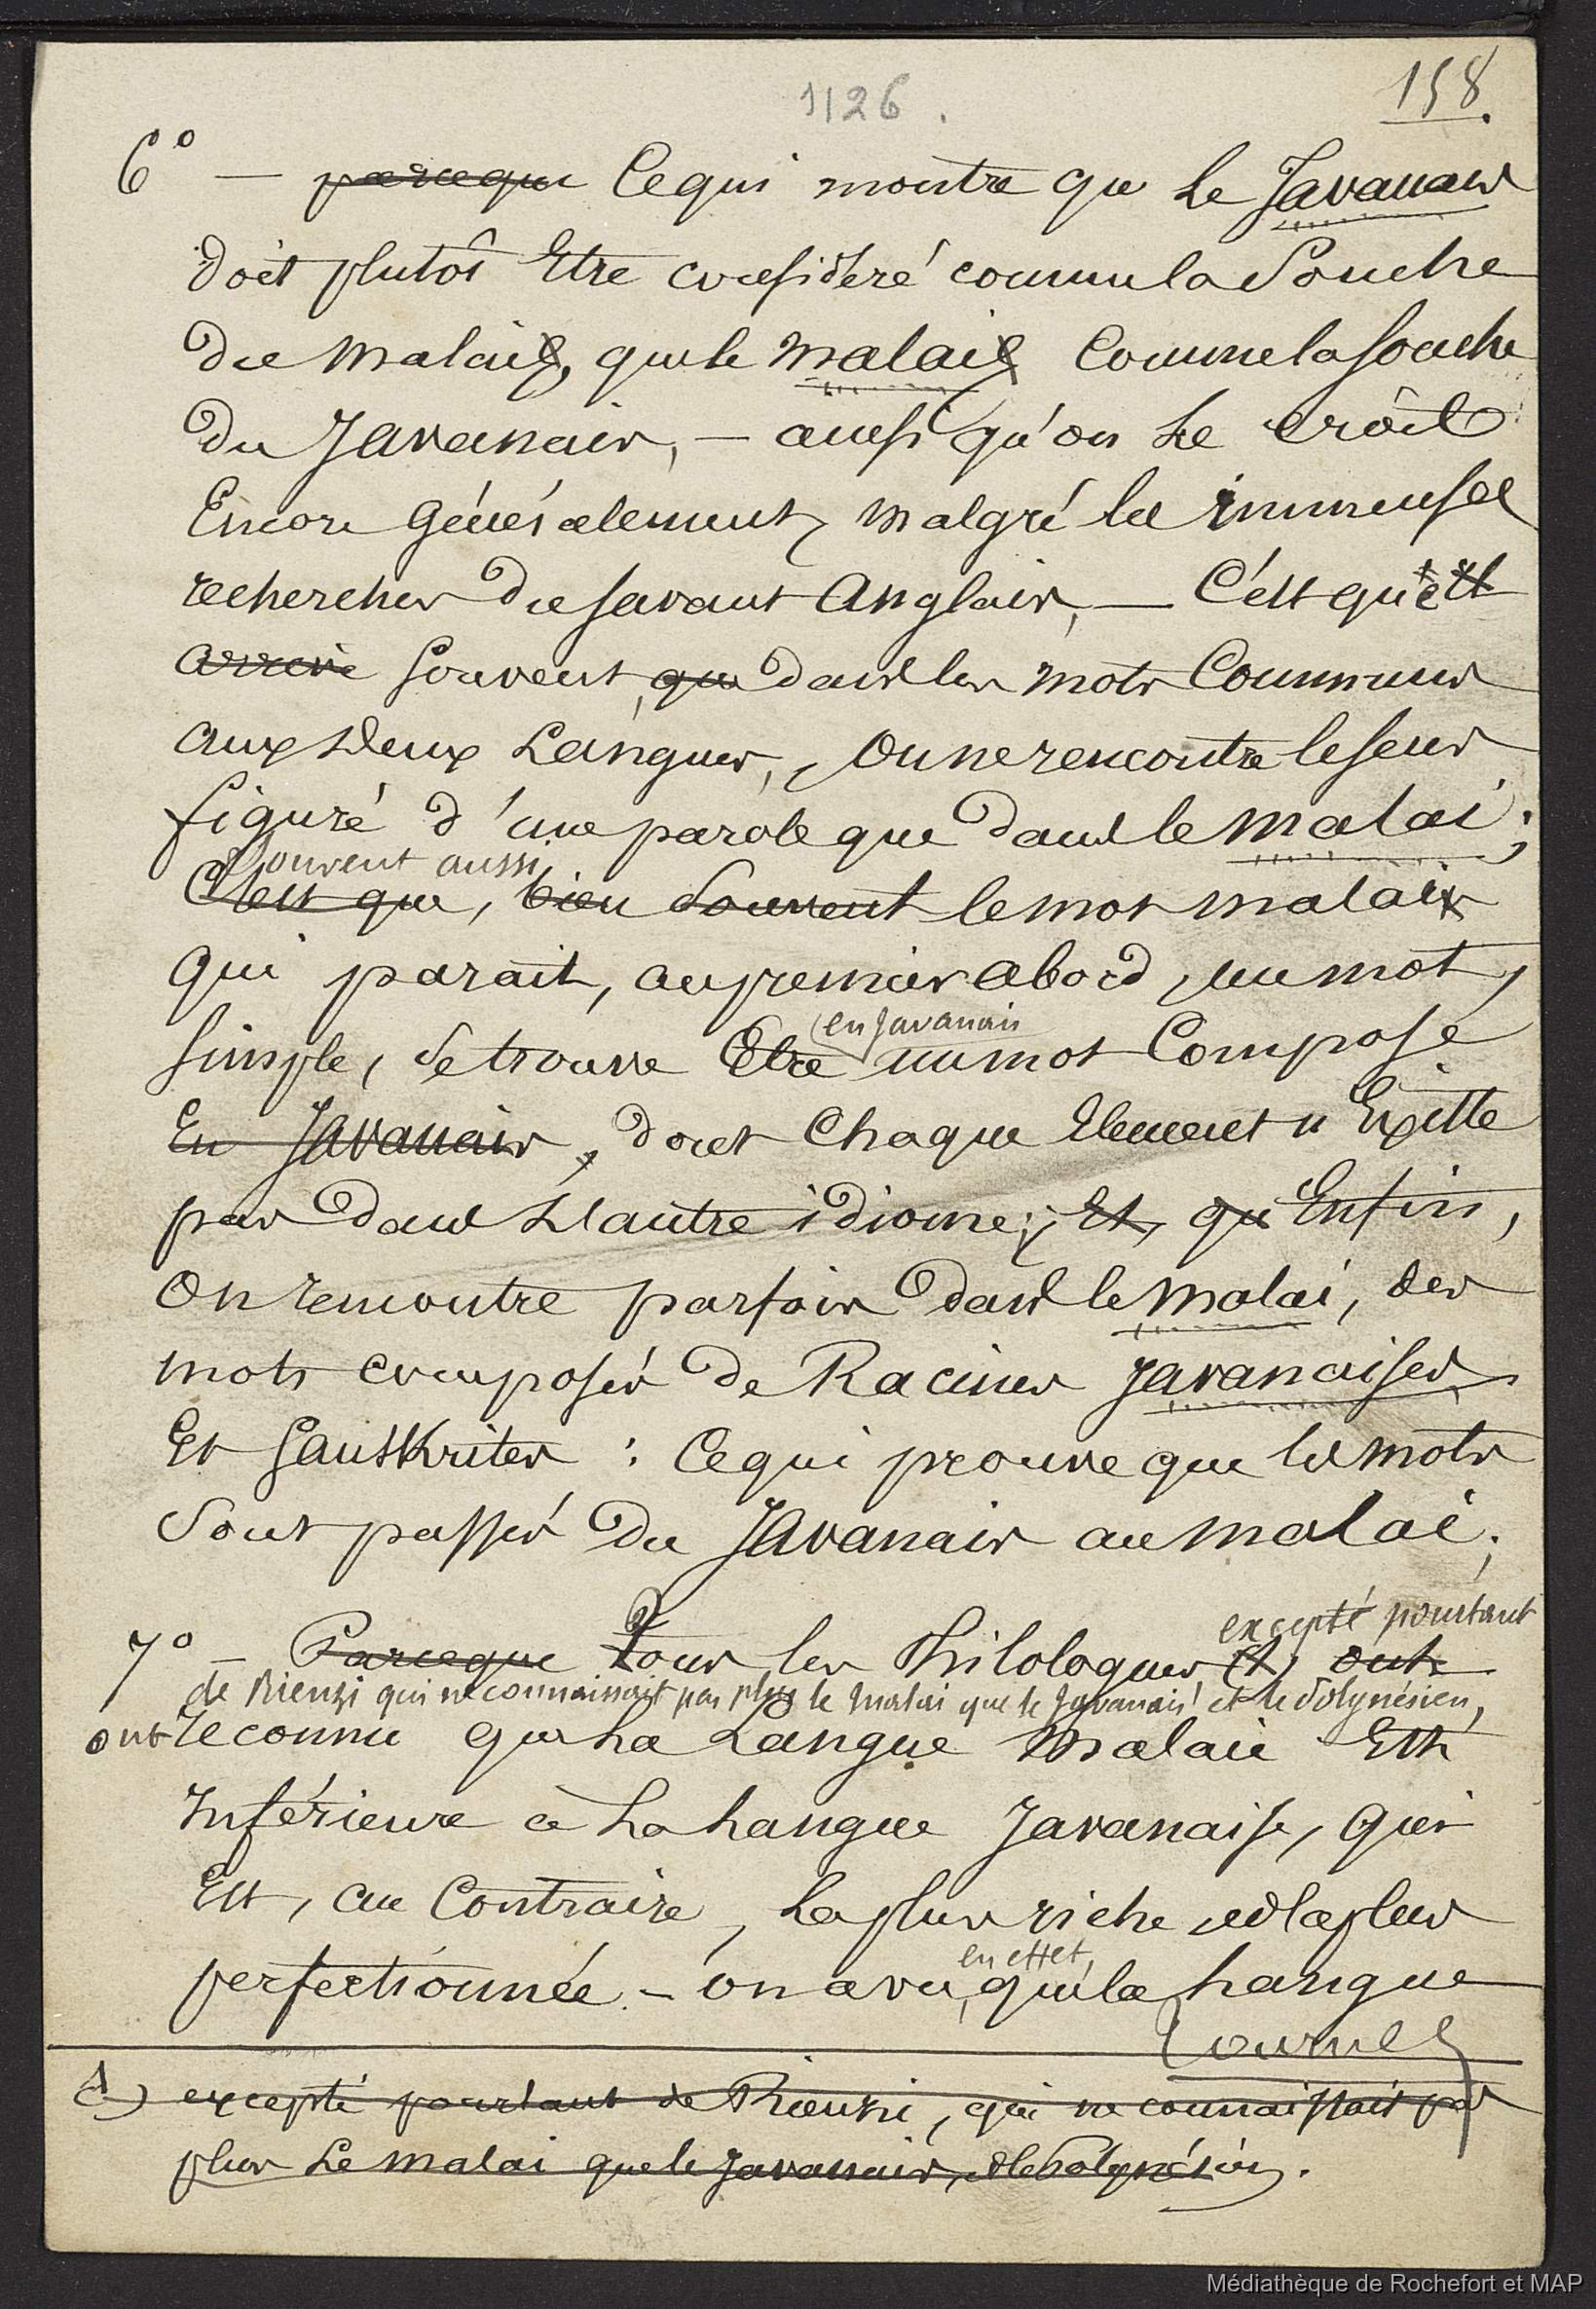 1126.
158.
6° — parceque Ce qui montre que le Javanais
doit plutôt Etre considéré comme la Souche
du malais, que le malais comme la souche
du Javanais, — ainsi qu'on le croit
Encore généralement, malgré les immenses
recherches du savant Anglais, — C'est qu'il
arrive souvent, que dans les mots Communs
aux deux Langues, on ne rencontre le sens
figuré d'une parole que dans le malai;
Souvent aussi
C'est que, bien Souvent le mot malais
qui parait, au premier abord, un mot,
en Javanais
simple, se trouve Etre un mot Composé
En Javanais, dont chaque Element n'Existe
pas dans L'autre idiome; Et, qu' Enfin,
On rencontre parfois dans le malai, des
mots composés de Racines Javanaises
Et Sanskrites : Ce qui prouve que les mots
Sont passés du Javanais au malai;
excepté pourtant
7° — Parceque Tous les Philologues (A) ont
de Rienzi qui ne connaissait pas plus le malai que le Javanais et le Polynésien,
ont reconnu que La Langue malaie Est
Inférieure à La Langue Javanaise, qui
Est, au Contraire, La plus riche et la plus
en effet,
perfectionnée. — On a vu, que la Langue
Tournez
A) excepté pourtant de Rienzi, qui ne connaissait pas
plus Le malai que le Javanais, et le Polynésien.
Médiathèque de Rochefort et MAP